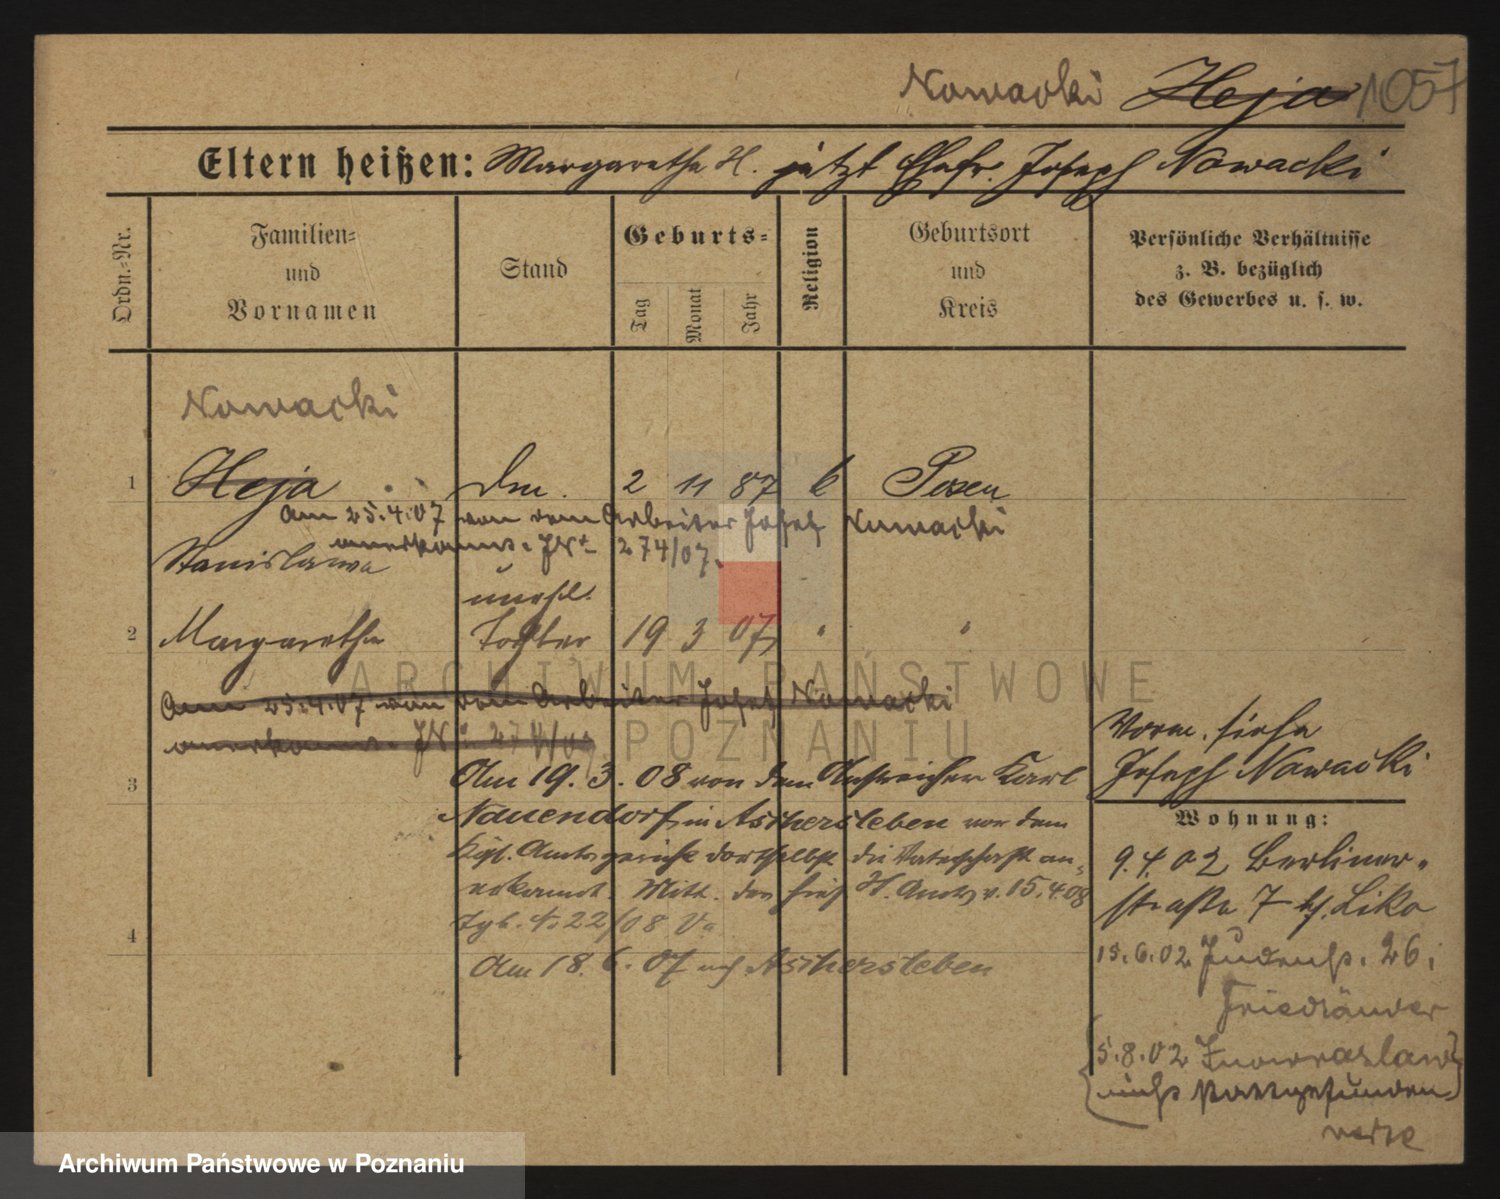 Nowacki Heja 1057
Eltern heißen: Margarethe H. jetzt Ehefr. Joseph Nowacki
Ordn.-Nr.
Familien- und Vornamen
Stand
Geburts-
Tag
Monat
Jahr
Religion
Geburtsort und Kreis
Persönliche Verhältnisse z. B. bezüglich des Gewerbes u. s. w.
Nowacki
1 Heja 2 11 87 Posen
Am 25.4.07 von dem Arbeiter Josef Nowacki
anerkannt. 274/07.
Stanislawa
unehl.
2 Margarethe Tochter 19 3 07 " "
Am 25.4.07 von dem Arbeiter Josef Nowacki
anerkannt. 274/07
3
Am 19.3.08 von dem Anstreicher Karl
Nauendorf in Aschersleben vor dem
Kgl. Amtsgericht dortselbst die Vaterschaft an-
erkannt. Mitt. des hies. Amts v. 15.4.08
Tgb. 22/08
4
Am 18.6.07 nach Aschersleben
Vorm. siehe
Joseph Nowacki
Wohnung:
9.4.02 Berliner-
straße 7 Liko
15.6.02 Judenstr. 26.
Friedländer
5.8.02 Inowrazlaw
nicht stattgefunden
ARCHIWUM PAŃSTWOWE
POZNANIU
Archiwum Państwowe w Poznaniu